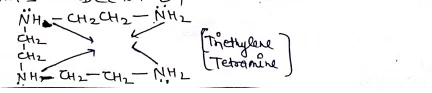 NH₂ — CH₂CH₂ — NH₂
CH₂
CH₂
NH — CH₂ — CH₂ — NH₂
[Triethylene
Tetramine]